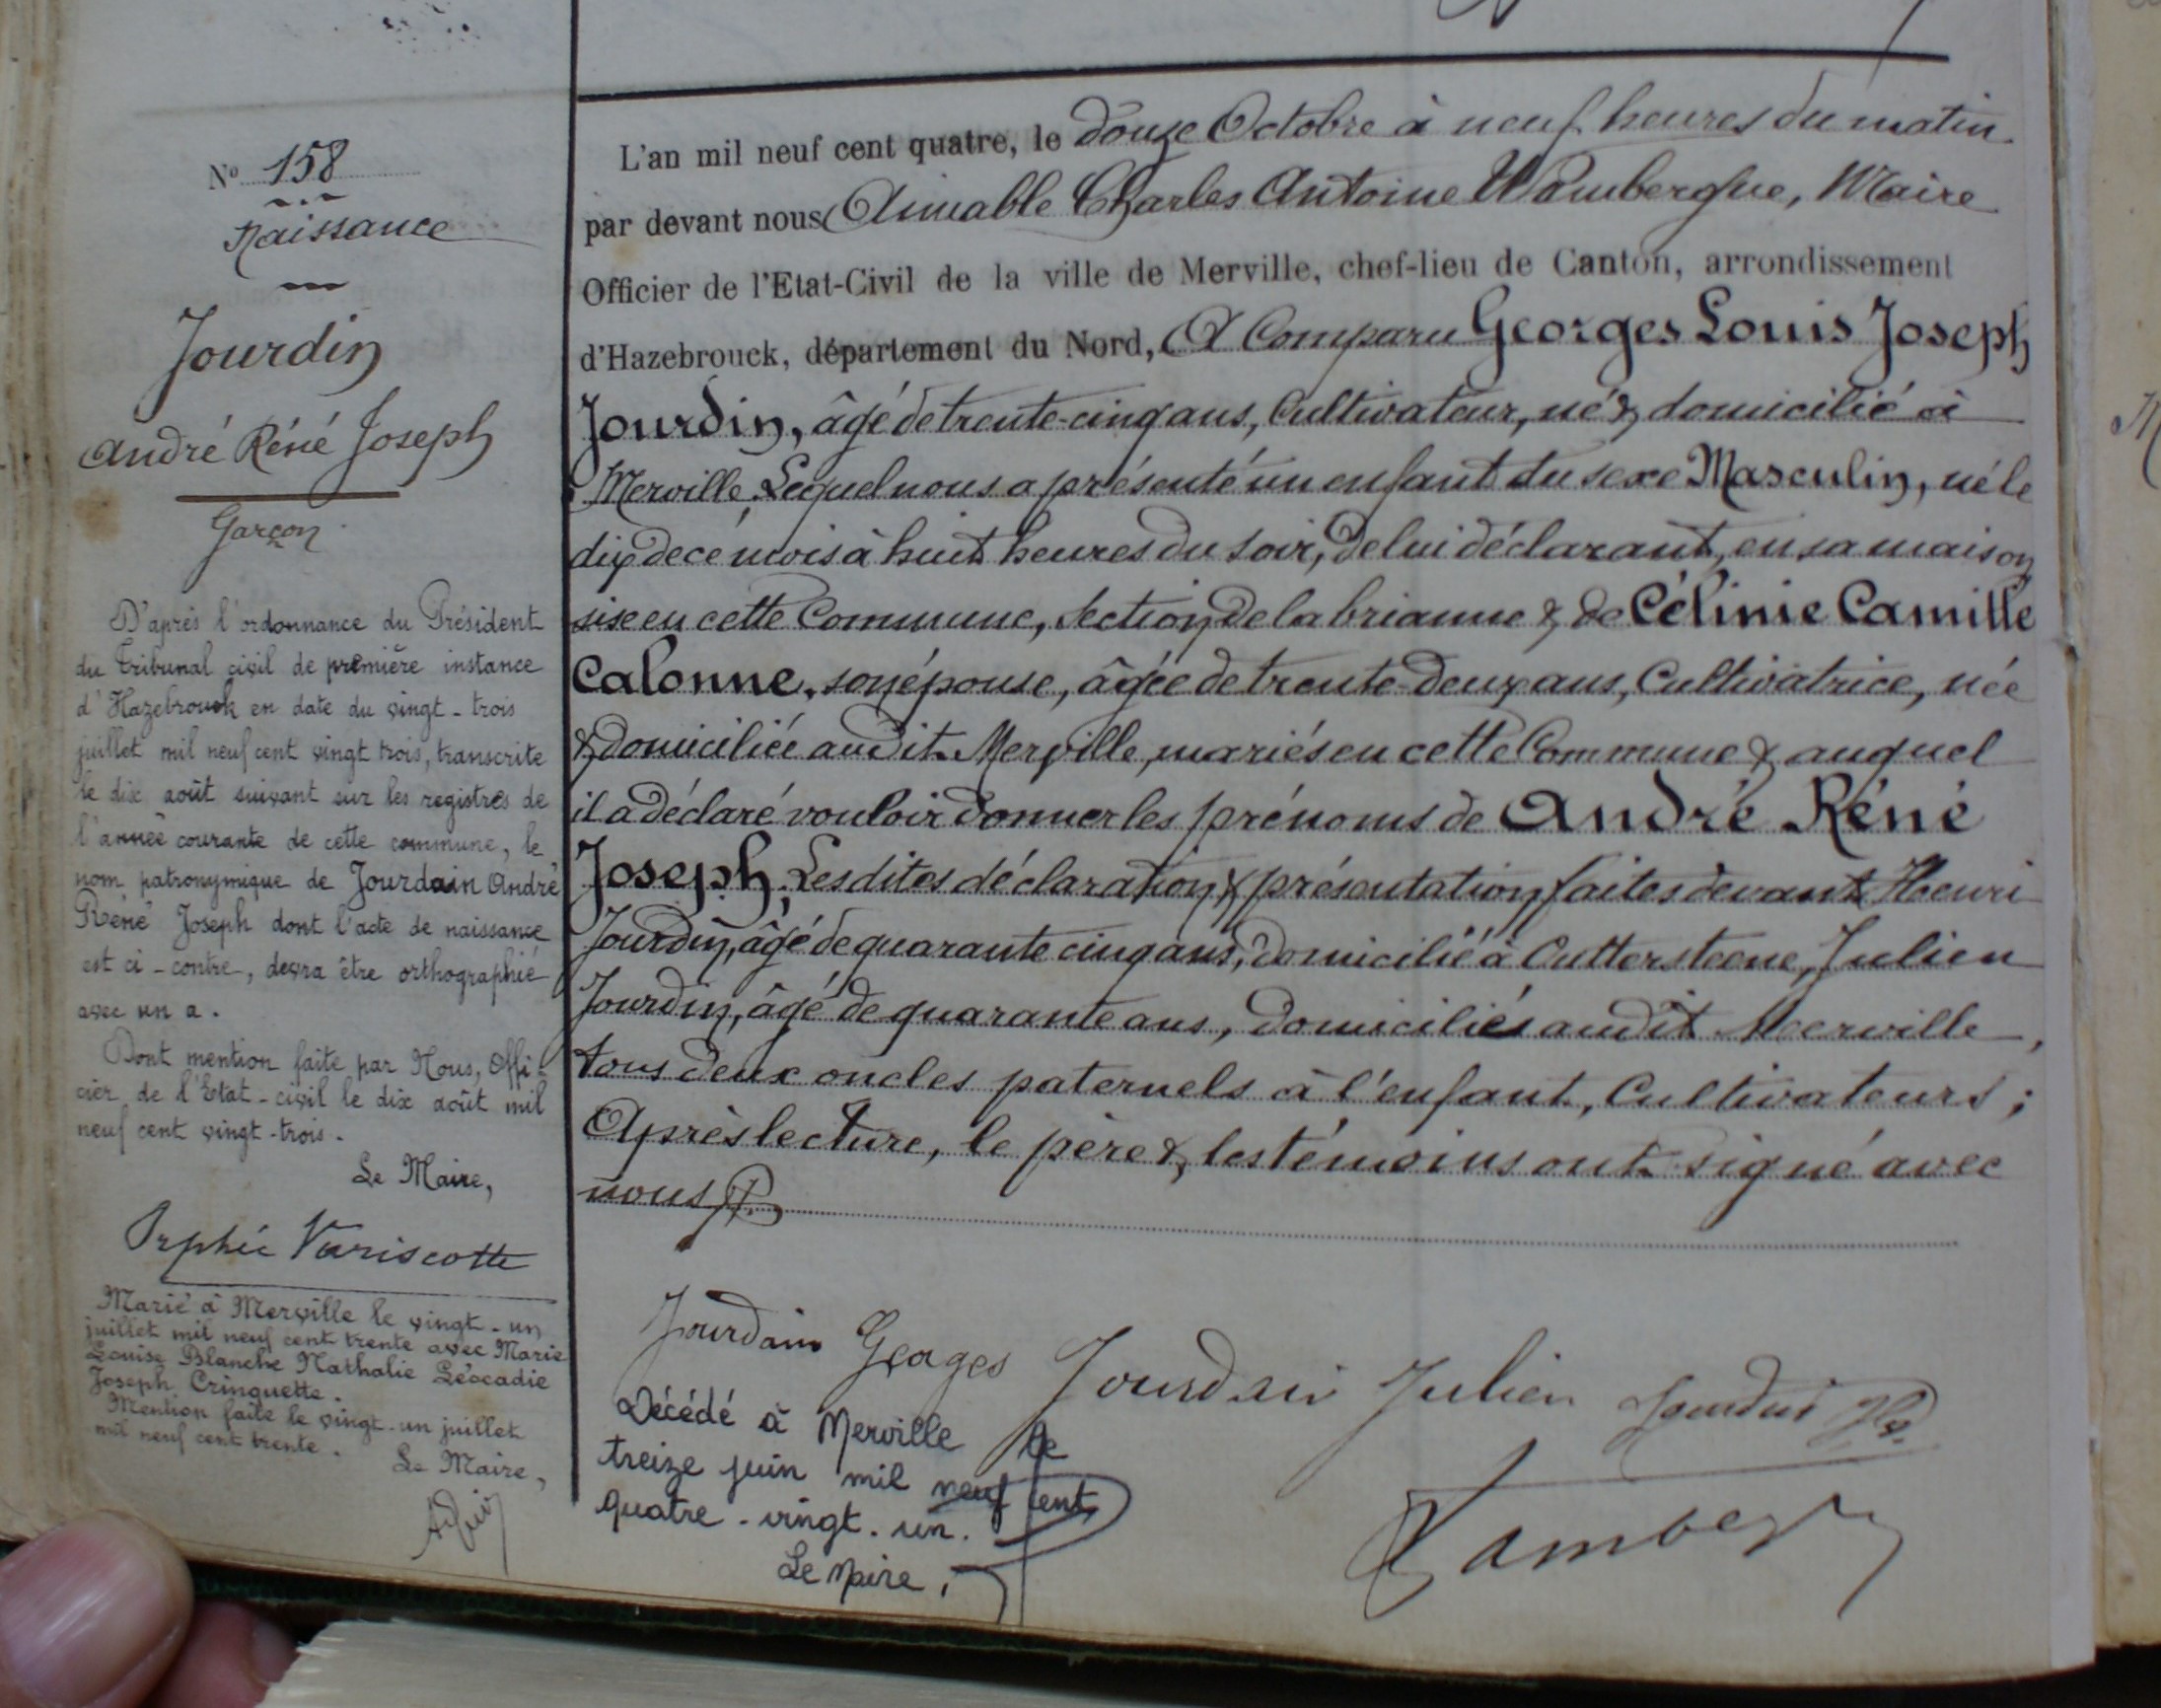 N° 158
Naissance
Jourdin
André Réné Joseph
Garçon
D'après l'ordonnance du Président
du Tribunal civil de première instance
d'Hazebrouck en date du vingt-trois
juillet mil neuf cent vingt trois, transcrite
le dix août suivant sur les registres de
l'année courante de cette commune, le
nom patronymique de Jourdain André
Réné Joseph dont l'acte de naissance
est ci-contre, devra être orthographié
avec un a.
Dont mention faite par Nous, Offi-
cier de l'Etat-civil le dix août mil
neuf cent vingt-trois.
Le Maire,
Orphée Variscotte
Marié à Merville le vingt-un
juillet mil neuf cent trente avec Marie
Louise Blanche Nathalie Léocadie
Joseph Crinquette.
Mention faite le vingt-un juillet
mil neuf cent trente.
Le Maire,
L'an mil neuf cent quatre, le douze Octobre à neuf heures du matin
par devant nous Aimable Charles Antoine Wamberghe, Maire
Officier de l'Etat-Civil de la ville de Merville, chef-lieu de Canton, arrondissement
d'Hazebrouck, département du Nord, A Comparu Georges Louis Joseph
Jourdin, âgé de trente-cinq ans, Cultivateur, né & domicilié à
Merville, Lequel nous a présenté un enfant du sexe Masculin, né le
dix de ce mois à huit heures du soir, de lui déclarant, en sa maison
sise en cette Commune, Section de la brianne & de Célinie Camille
Calonne, son épouse, âgée de trente-deux ans, Cultivatrice, née
& domiciliée audit Merville, mariés en cette Commune & auquel
il a déclaré vouloir donner les prénoms de André Réné
Joseph, Lesdites déclaration & présentation faites devant Henri
Jourdin, âgé de quarante cinq ans, domicilié à Outtersteene, Julien
Jourdin, âgé de quarante ans, domiciliés audit Merville,
tous deux oncles paternels à l'enfant, Cultivateurs;
Après lecture, le père & les témoins ont signé avec
nous
Jourdain Georges Jourdain Julien Jourdain
Wambergh
Décédé à Merville le
treize juin mil neuf cent
quatre-vingt-un.
Le Maire,